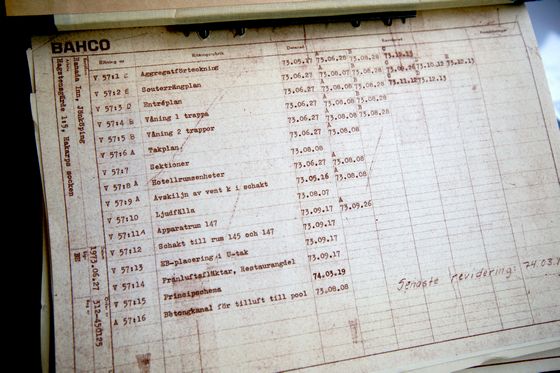 BAHCO
Ritning nr Ritningsrubrik Daterad
V 57:1 C Aggregatförteckning 73.05.17 73.06.28 73.08.28 73.10.13
V 57:2 E Souterrängplan 73.06.27 73.08.07 73.08.28 73.09.26 73.10.12 73.12.13
V 57:3 D Entréplan 73.06.27 73.08.28 73.08.28 73.11.12 73.12.13
V 57:4 B Våning 1 trappa 73.06.27 73.08.28 73.08.28
V 57:5 B Våning 2 trappor 73.06.27 73.08.28 73.08.28
V 57:6 A Takplan 73.06.27 73.08.28
V 57:7 Sektioner 73.08.08
V 57:8 A Hotellrumsenheter 73.06.27 73.08.28
V 57:9 A Avskiljn av vent k i schakt 73.05.16 73.08.28
V 57:10 Ljudfälla 73.08.07
V 57:11A Apparatrum 147 73.09.17 73.09.26
V 57:12 Schakt till rum 145 och 147 73.09.17
V 57:13 EB-placering i U-tak 73.09.17
V 57:14 Frånluftsfläktar, Restaurangdel 73.09.17
V 57:15 Principschema 74.03.19
A 57:16 Betongkanal för tilluft till pool 73.08.08
Senaste revidering: 74.03.1
Ramada Inn, Jönköping
Hagstensgärde 1:5, Hakarps socken
1973.06.27
312-450125